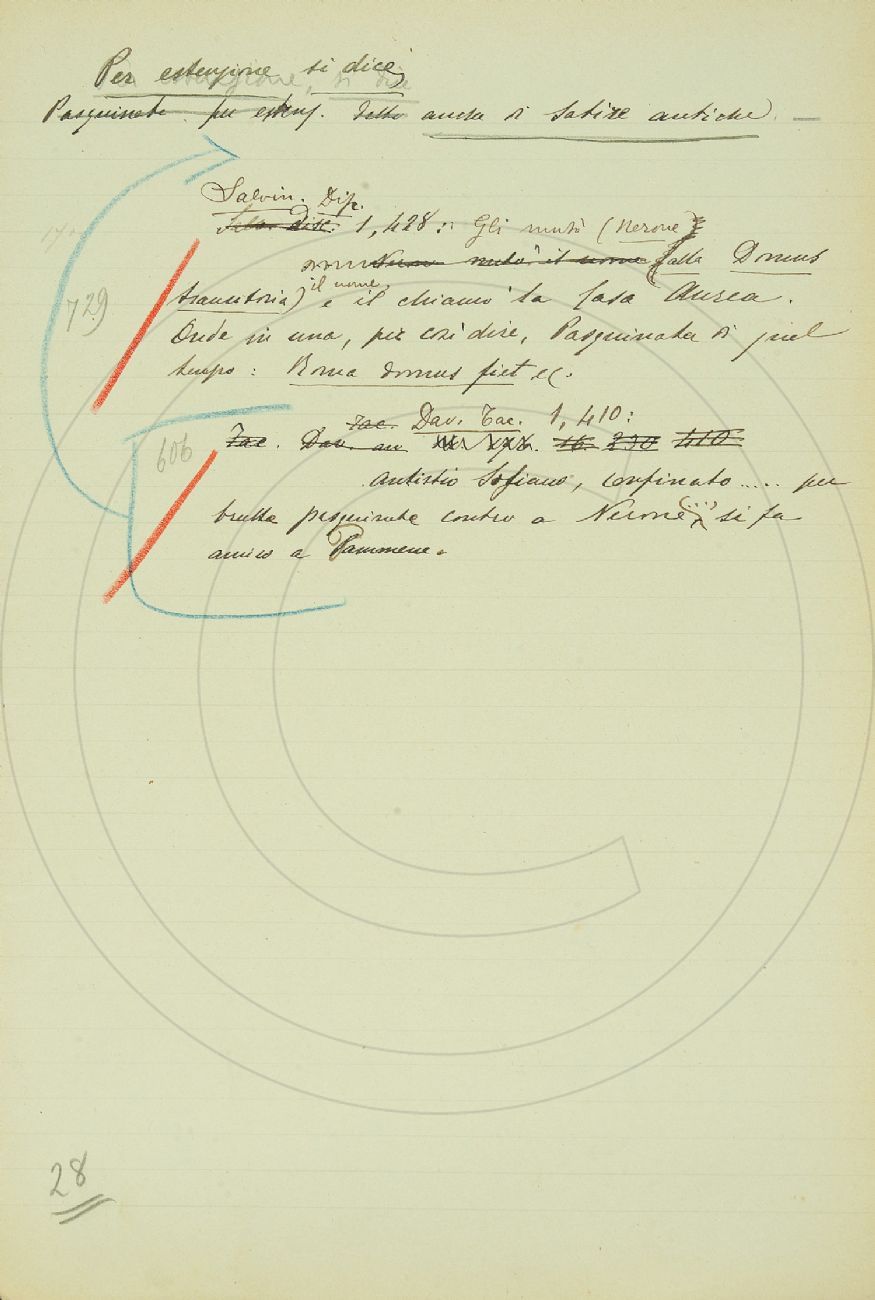 Per estensione si dice
Pasquinata per estens. detto anche di Satire antiche. —
Salvin. Dif.
disc. 1,428: Gli mutò (Nerone
mutò il nome alla Domus
transitoria) il nome, e il chiamò la Casa Aurea.
729
Onde in una, per così dire, Pasquinata di quel
tempo: Roma domus fiet ec.
Tac. Dav. Tac. 1,410:
606
Tac. Dav. ann 16. 230 410
Antistio Sofiano, confinato..... per
brutta pasquinata contro a Nerone (...), si fa
amico a Pammene.
28